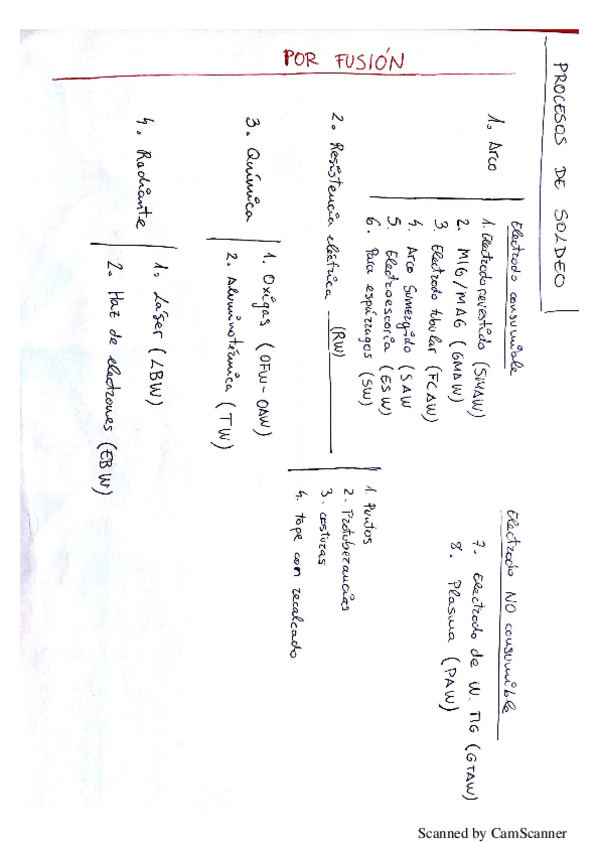 PROCESOS DE SOLDEO
POR FUSIÓN
1. Arco
Electrodo consumible
1. Electrodo revestido (SMAW)
2. MIG/MAG (GMAW)
3. Electrodo tubular (FCAW)
4. Arco Sumergido (SAW
5. Electroescoria (ESW)
6. Para espárragos (SW)
Electrodo NO consumible
7. Electrodo de W. TIG (GTAW)
8. Plasma (PAW)
2. Resistencia eléctrica (RW)
1. Puntos
2. Protuberancias
3. costuras
4. tope con recalcado
3. Química
1. Oxigas (OFW-OAW)
2. Aluminotérmica (TW)
4. Radiante
1. Láser (LBW)
2. Haz de electrones (EBW)
Scanned by CamScanner